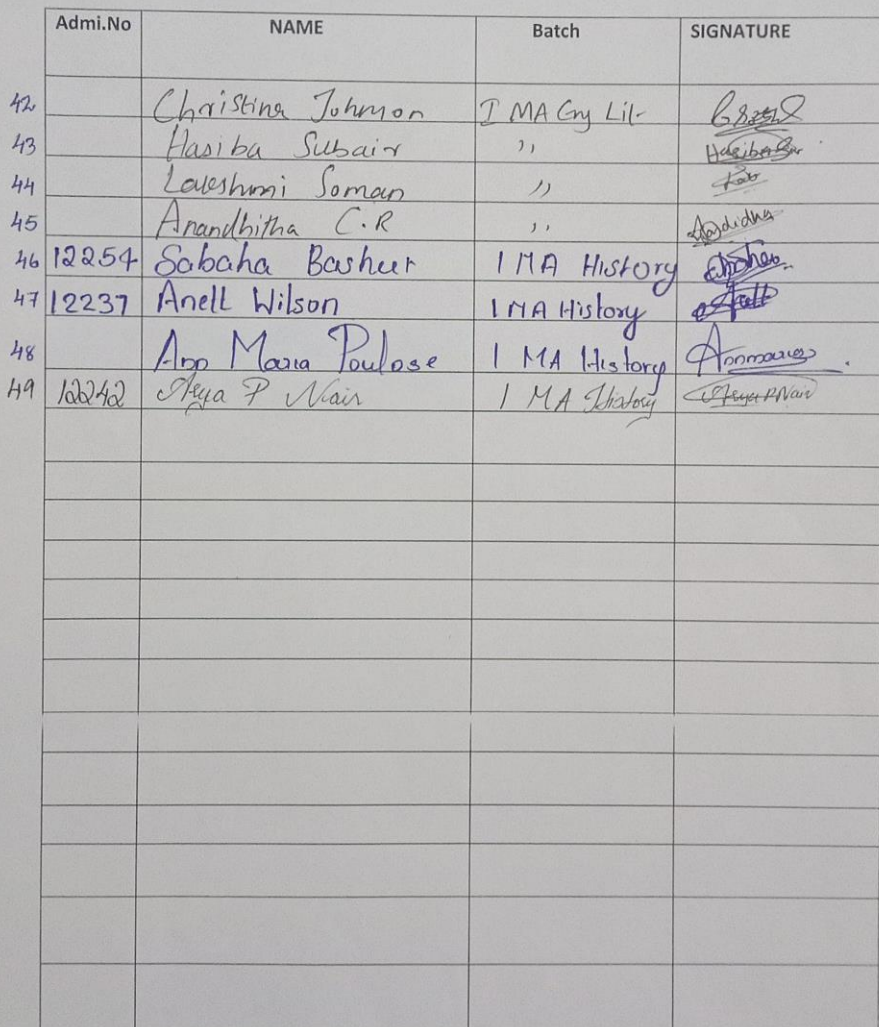 Admi.No NAME Batch SIGNATURE
42 Christina Johnson I MA Eng Lit-
43 Hasiba Subair ,,
44 Lakshmi Soman ,,
45 Anandhitha C.R ,,
46 12254 Sabaha Basheer I MA History
47 12237 Anell Wilson I MA History
48 Ann Maria Poulose I MA History Annmaria
49 12242 P Nair I MA History